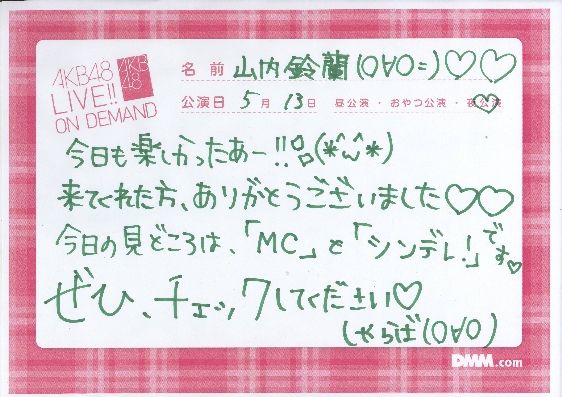 AKB48
LIVE!!
ON DEMAND
AKB
48
名前 山内鈴蘭(O∀O=)♡♡
公演日 5月 13日 昼公演・おやつ公演・夜公演
今日も楽しかったあー!!(*^ω^*)
来てくれた方、ありがとうございました♡♡
今日の見どころは、「MC」と「シンデレ!」です♡
ぜひ、チェックしてください♡
(やらば(O∀O)
DMM.com